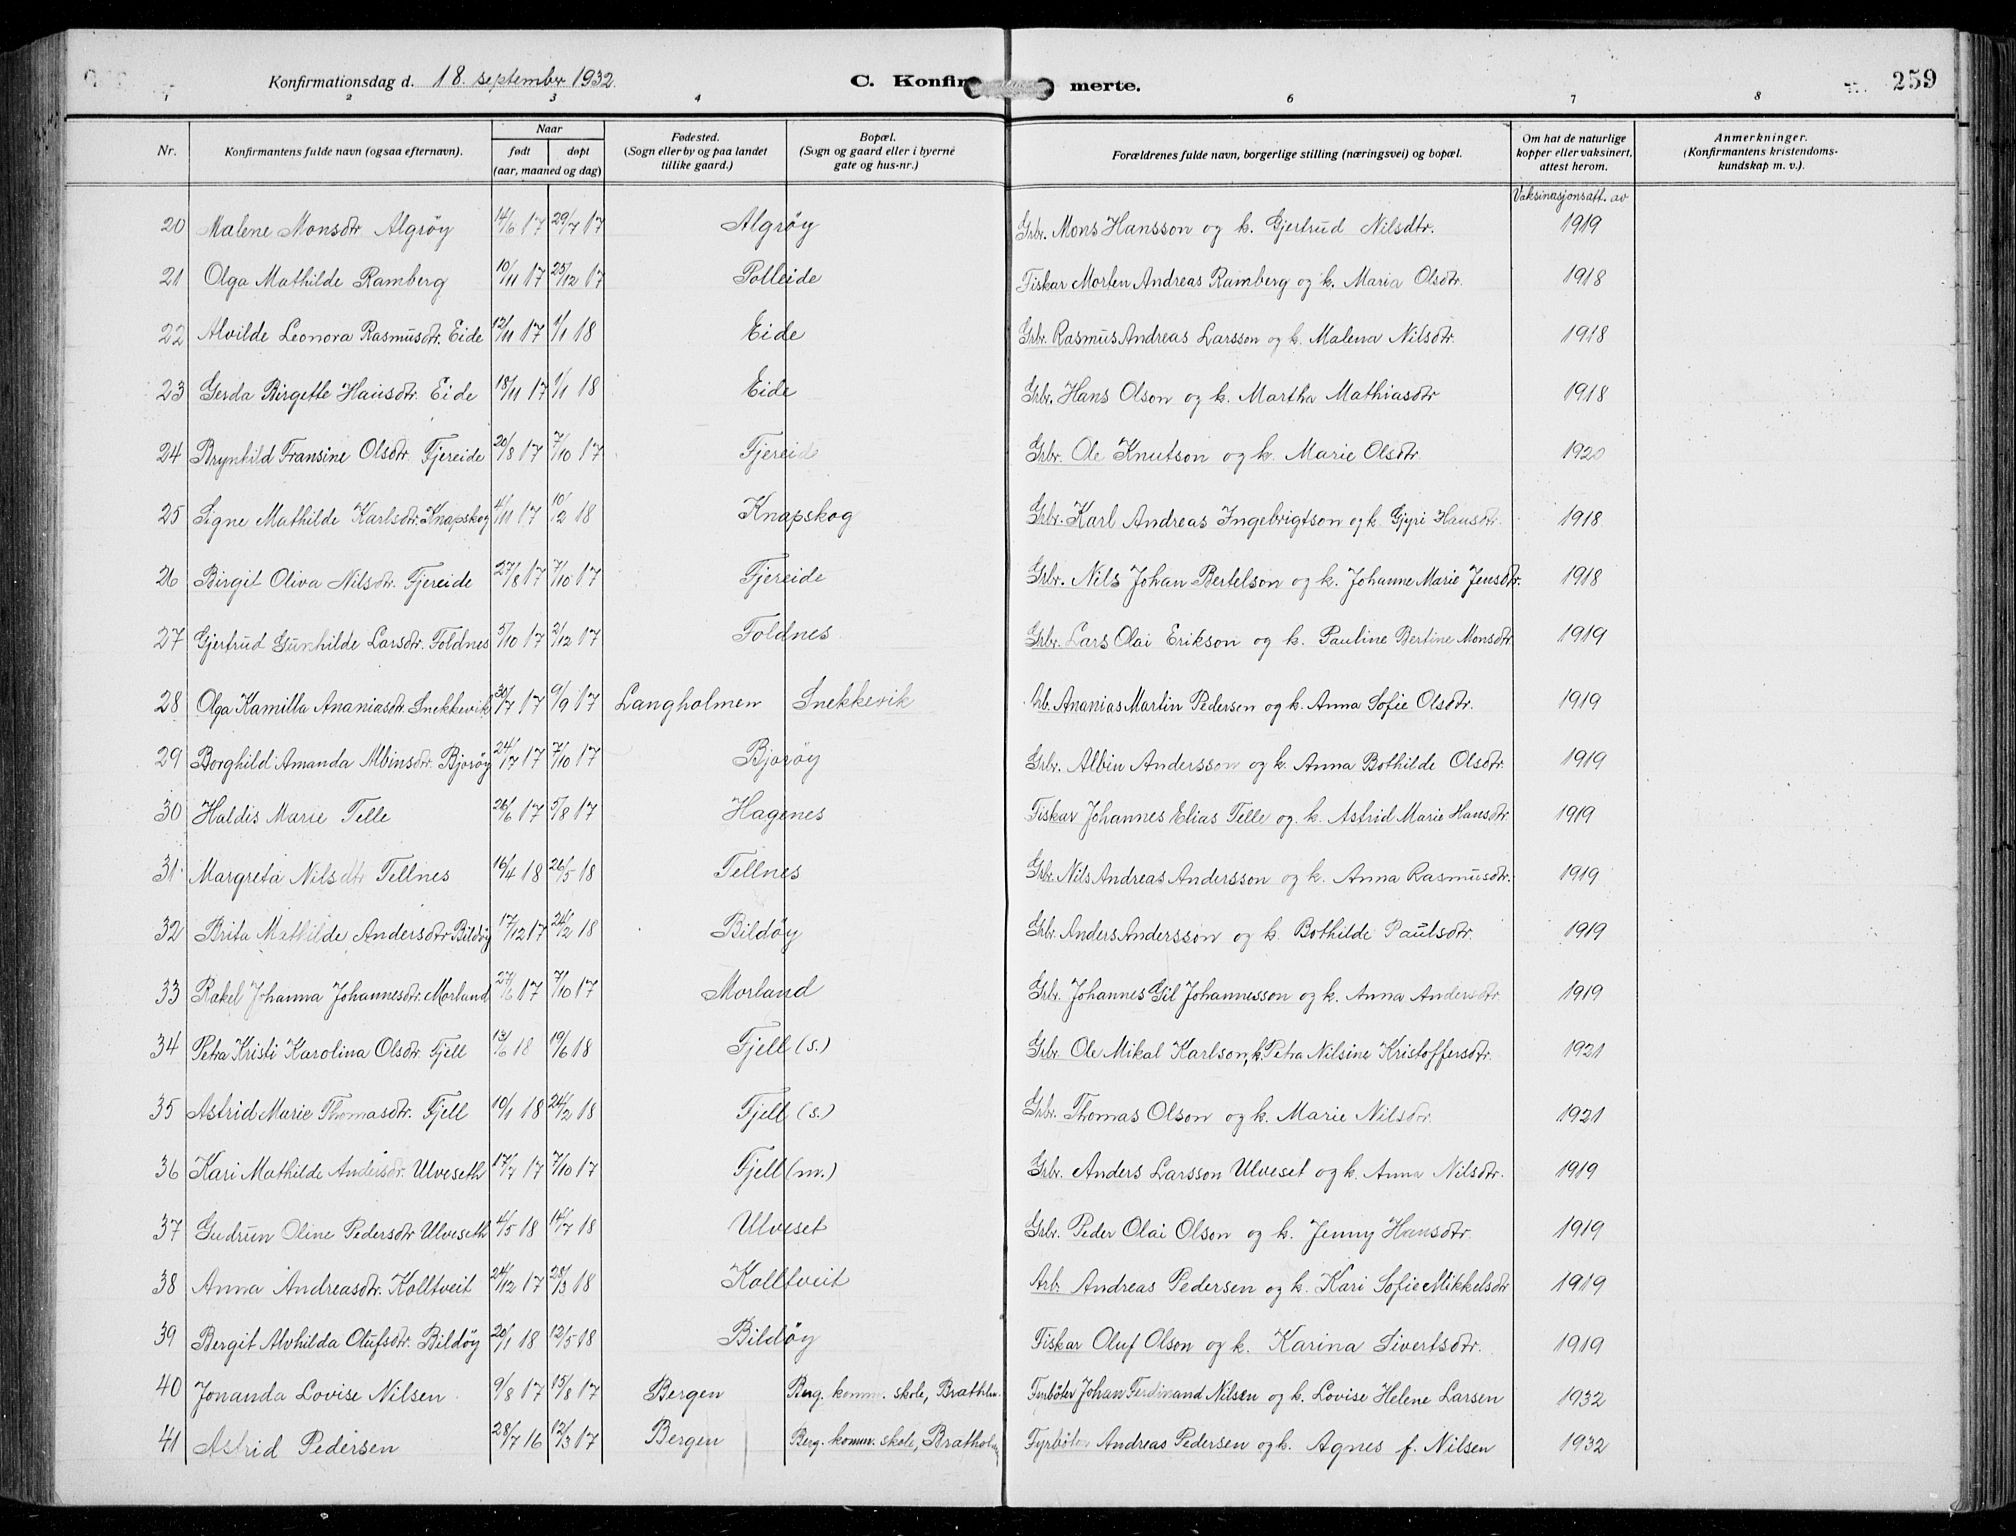 Konfirmationsdag d. 18. september 1932. C. Konfir merte. 259
1 2 3 4 6 7 8
Nr. Konfirmantens fulde navn (ogsaa efternavn). Naar født døpt (aar, maaned og dag) Fødested. (Sogn eller by og paa landet tillike gaard.) Bopæl. (Sogn og gaard eller i byerne gate og hus-nr.) Forældrenes fulde navn, borgerlige stilling (næringsvei) og bopæl. Om hat de naturlige kopper eller vaksinert, attest herom. Anmerkninger. (Konfirmantens kristendoms-kundskap m. v.).
Vaksinasjonsatt. av
20 Malene Monsdtr Algrøy 14/6 17 29/7 17 Algrøy Grbr. Mons Hansson og k. Gjertrud Nilsdtr. 1919
21 Olga Mathilde Ramberg 10/11 17 25/12 17 Polleide Fiskar Morten Andreas Ramberg og k. Maria Olsdtr. 1918
22 Alvilde Leonora Rasmusdtr. Eide 12/11 17 1/1 18 Eide Grbr. Rasmus Andreas Larsson og k. Malena Nilsdtr. 1918
23 Gerda Birgette Hansdtr. Eide 18/11 17 1/1 18 Eide Grbr. Hans Olson og k. Martha Mathiasdtr 1918
24 Brynhild Fransine Olsdtr. Fjereide 20/8 17 7/10 17 Fjereide Grbr. Ole Knutson og k. Marie Olsdtr 1920
25 Signe Mathilde Karlsdtr. Knapskog 4/11 17 10/2 18 Knapskog Grbr. Karl Andreas Ingebrigtson og k. Gjyri Hansdtr. 1918
26 Birgit Oliva Nilsdtr. Fjereide 27/8 17 7/10 17 Fjereide Grbr. Nils Johan Bertelson og k. Johanne Marie Jensdtr. 1918
27 Gjertrud Gunhilde Larsdtr. Foldnes 5/10 17 2/12 17 Foldnes Grbr. Lars Olai Erikson og k. Pauline Bertine Monsdtr 1919
28 Olga Kamilla Ananiasdtr. Snekkevik 30/7 17 9/9 17 Langholmen Snekkevik Arb. Ananias Martin Pedersen og k. Anna Sofie Olsdtr. 1919
29 Borghild Amanda Albinsdtr. Bjorøy 24/7 17 7/10 17 Bjorøy Grbr. Albin Andersson og k. Anna Bothilde Olsdtr 1919
30 Haldis Marie Telle 26/6 17 5/8 17 Hagenes Fiskar Johannes Elias Telle og k. Astrid Marie Hansdtr 1919
31 Margreta Nilsdtr Tellnes 16/4 18 26/5 18 Tellnes Grbr. Nils Andreas Andersson og k. Anna Rasmusdtr. 1919
32 Brita Mathilde Andersdtr Bildøy 17/12 17 24/2 18 Bildøy Grbr. Anders Andersson og k. Bothilde Paulsdtr. 1919
33 Rakel Johanna Johannesdtr. Morland 27/6 17 7/10 17 Morland Grbr. Johannes Gil Johannesson og k. Anna Andersdtr. 1919
34 Petra Kristi Karolina Olsdtr. Fjell 13/6 18 19/6 18 Fjell (s.) Grbr. Ole Mikal Karlson, k. Petra Nilsine Kristoffersdtr. 1921
35 Astrid Marie Thomasdtr. Fjell 10/1 18 24/2 18 Fjell (s.) Grbr. Thomas Olson og k. Marie Nilsdtr. 1921
36 Kari Mathilde Andersdtr. Ulveseth 17/7 17 7/10 17 Fjell (m.) Grbr. Anders Larsson Ulveset og k. Anna Nilsdtr. 1919
37 Gudrun Oline Pedersdtr Ulveseth 4/5 18 14/7 18 Ulveset Grbr. Peder Olai Olson og k. Jenny Hansdtr. 1919
38 Anna Andreasdtr. Kolltveit 24/12 17 28/3 18 Kolltveit Arb. Andreas Pedersen og k. Kari Sofie Mikkelsdtr 1919
39 Bergit Alvhilda Olufsdtr. Bildøy 20/1 18 12/5 18 Bildøy Fiskar Oluf Olson og k. Karina Sivertsdtr. 1919
40 Jonanda Lovise Nilsen 9/8 17 15/8 17 Bergen Berg. komm. skole, Brathlm. Fyrbøter Johan Ferdinand Nilsen og k. Lovise Helene Larsen 1932
41 Astrid Pedersen 28/7 16 12/3 17 Bergen Berg. komm. skole, Bratholm Fyrbøter Andreas Pedersen og k. Agnes f. Nilsen 1932